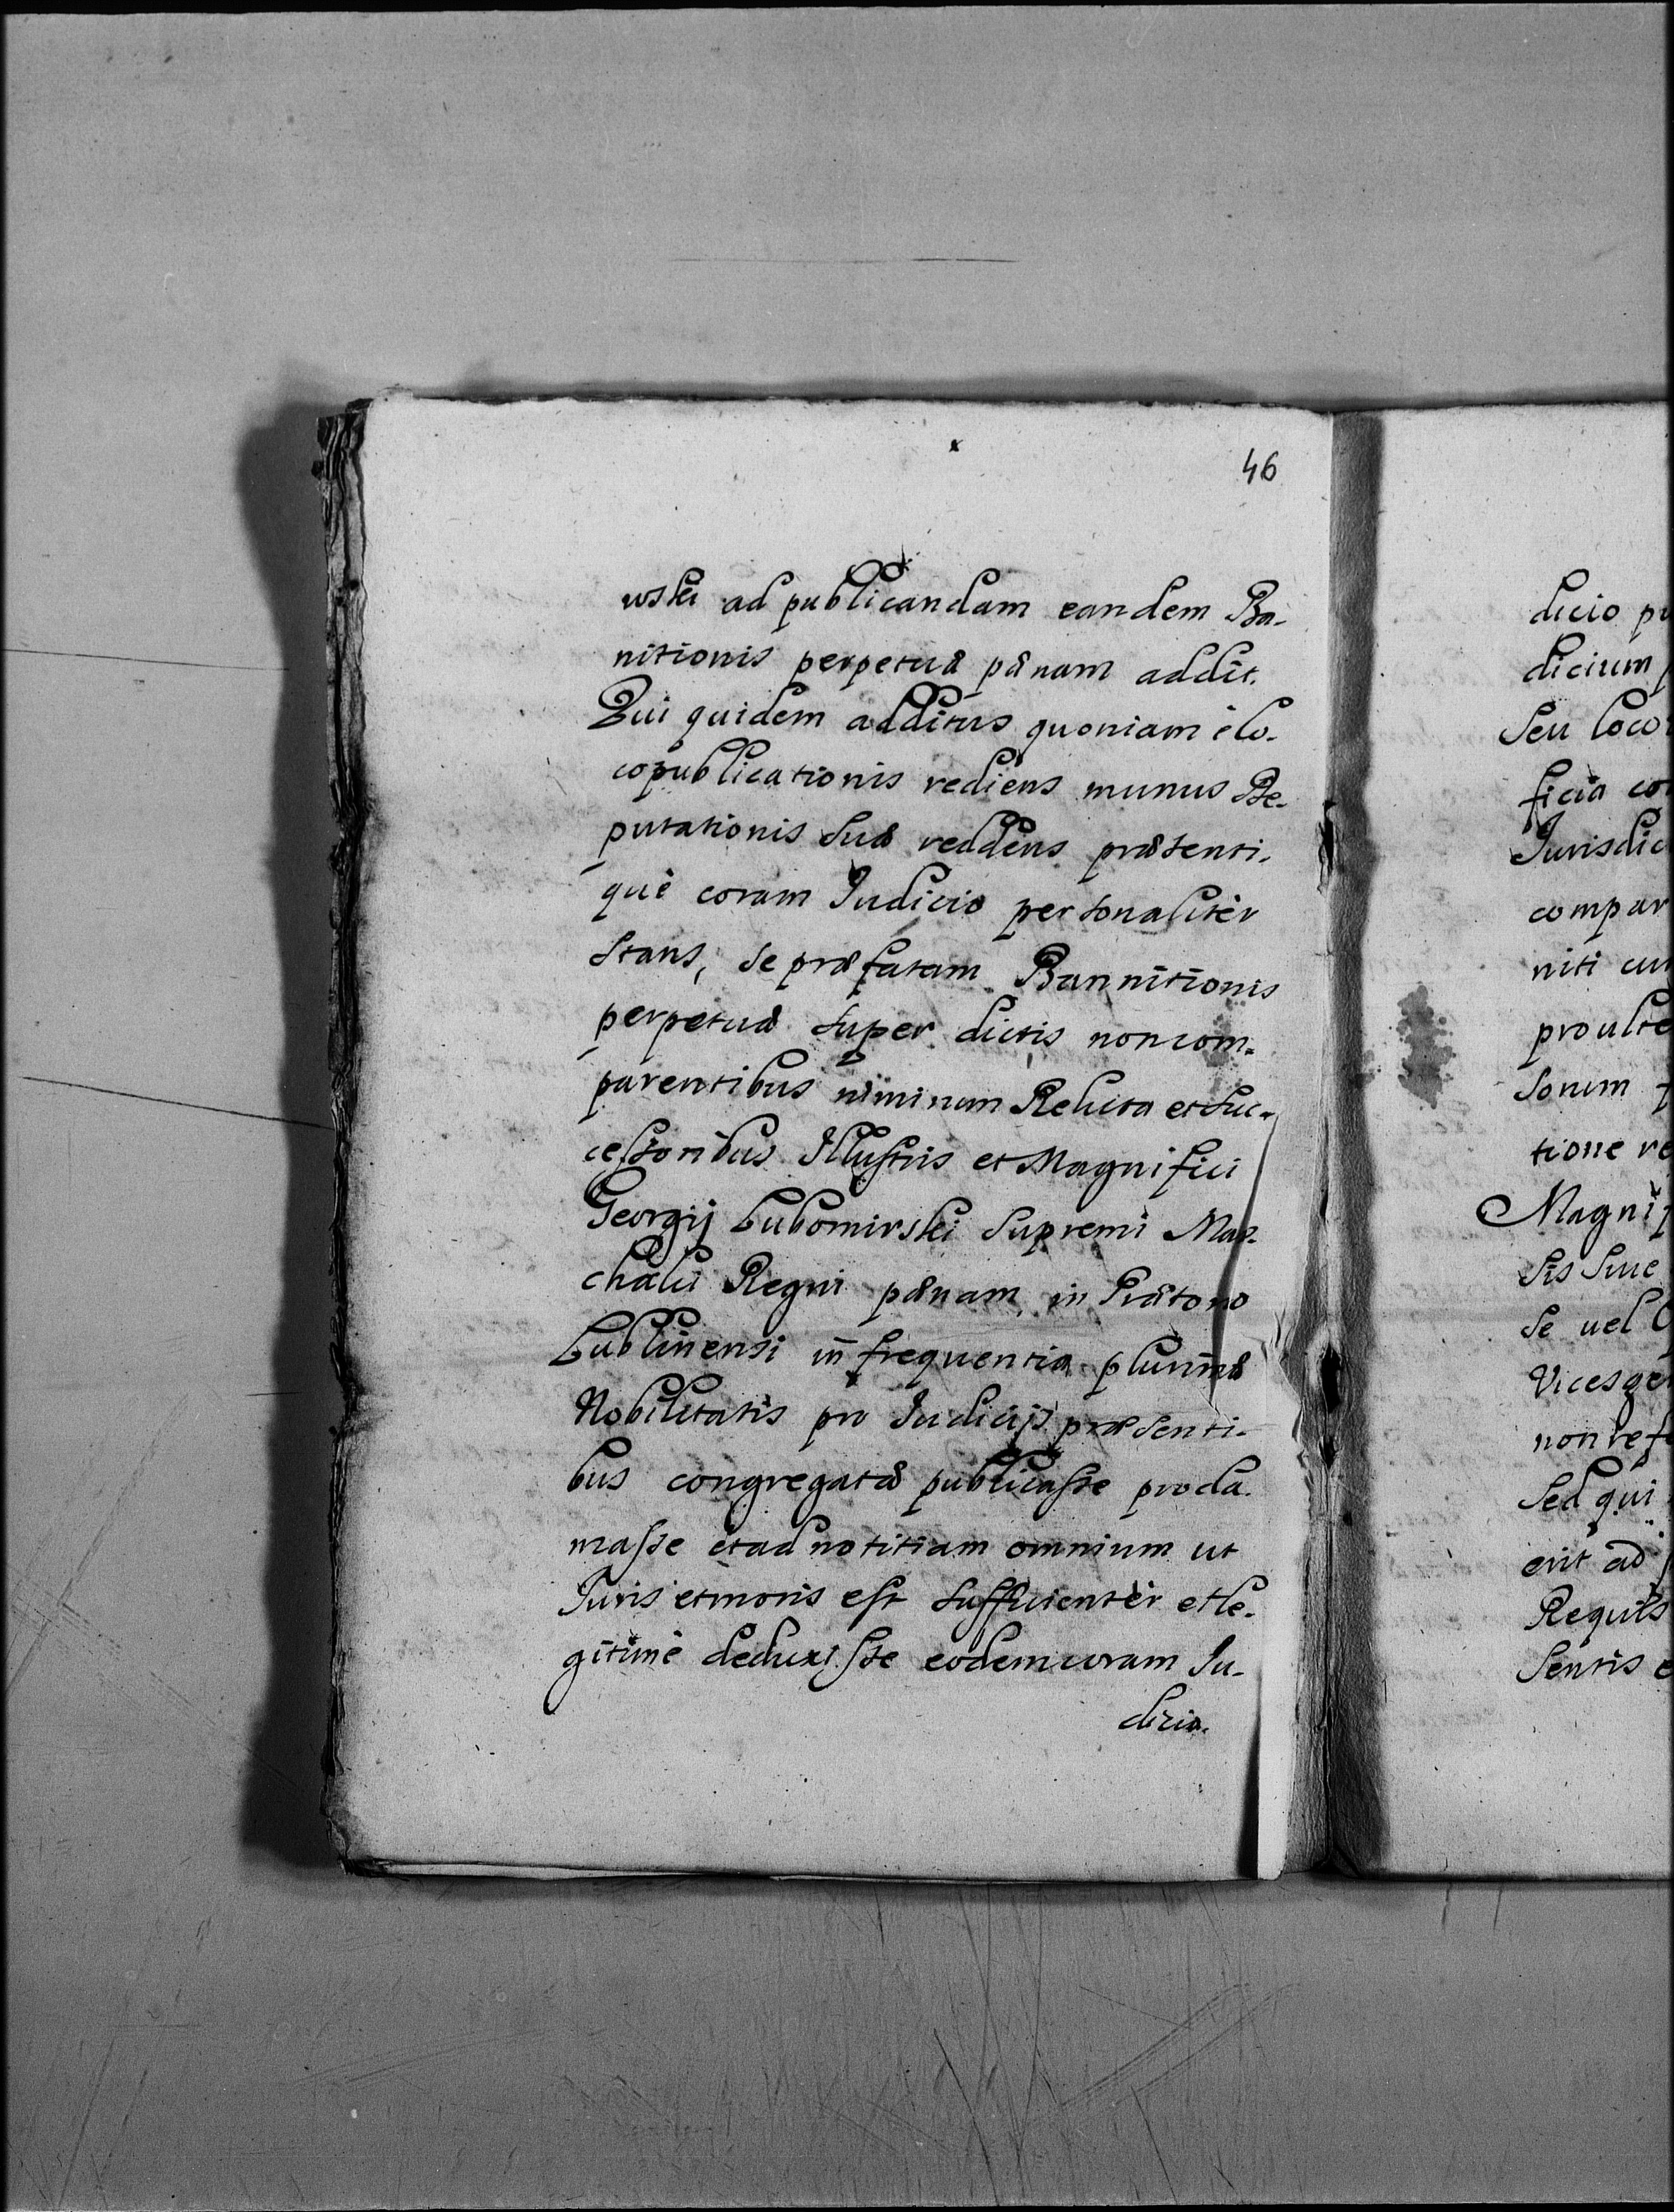 46
wski ad publicandam eandem Ba-
nitionis perpetuæ pænam addit.
Qui quidem additus quoniam è lo-
co publicationis rediens munus De-
putationis suæ reddens præsenti-
què coram Iudicio personalitèr
stans, se præfatam Bannitionis
perpetuæ super dictis non com-
parentibus nimirum Relicta et suc-
cessoribus Illustris et Magnifici
Georgij Lubomirski Supremi Mar-
chalci Regni pænam, in Prætorio
Lublinensi in frequentia plurimæ
Nobilitatis pro Iudicijs præsenti-
bus congregatæ publicasse procla-
masse et ad notitiam omnium ut
Iuris et moris est sufficientèr et le-
gitimè deduxisse eodem coram Iu-
dicio.
dicio
dicium
seu loco
ficia
Iurisdic
compar
niti
pro ulte
sonum
tione re
Magnif
sis siue
se uel
Vicesge
non ref
sed qui
erit ad
Requis
sentis